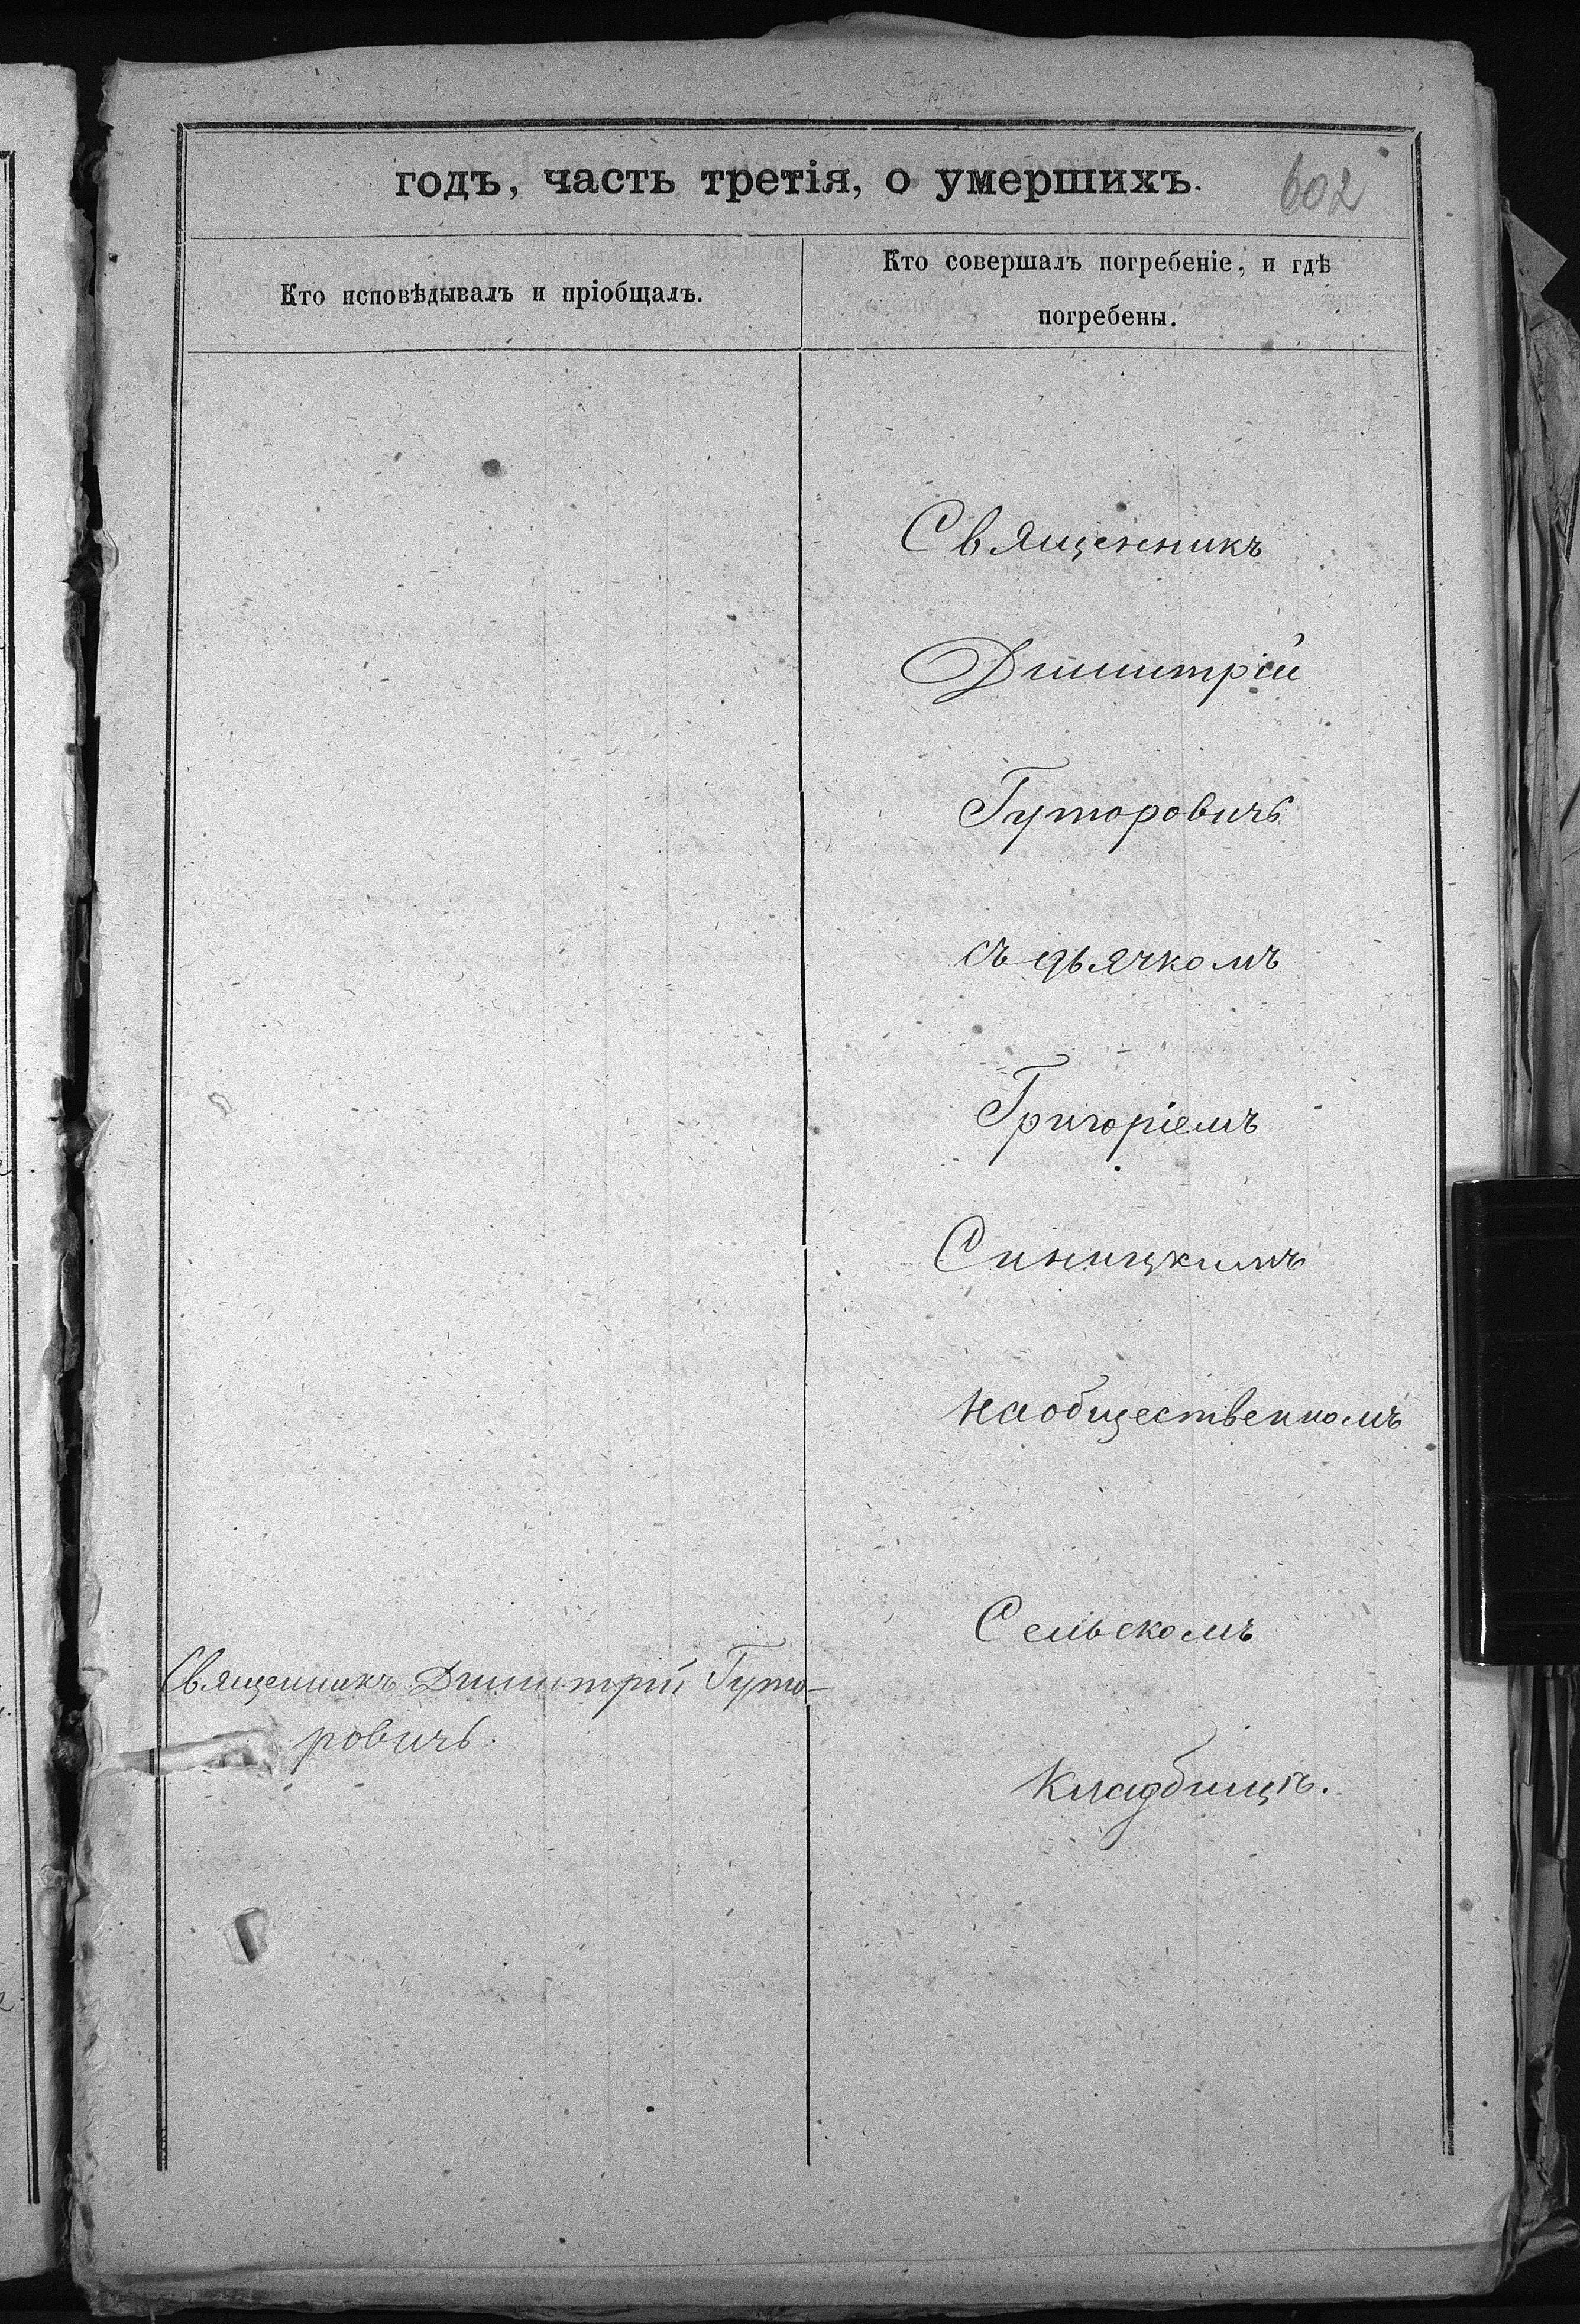 годъ, часть третія, о умершихъ.
602
Кто исповѣдывалъ и пріобщалъ.
Кто совершалъ погребеніе, и гдѣ
погребены.
Священникъ
Димитрій
Гуторовичъ
съ дьячкомъ
Григоріемъ
Синицкимъ
на общественномъ
Сельскомъ
Священникъ Димитрій Гуто-
ровичъ.
Кладбищѣ.